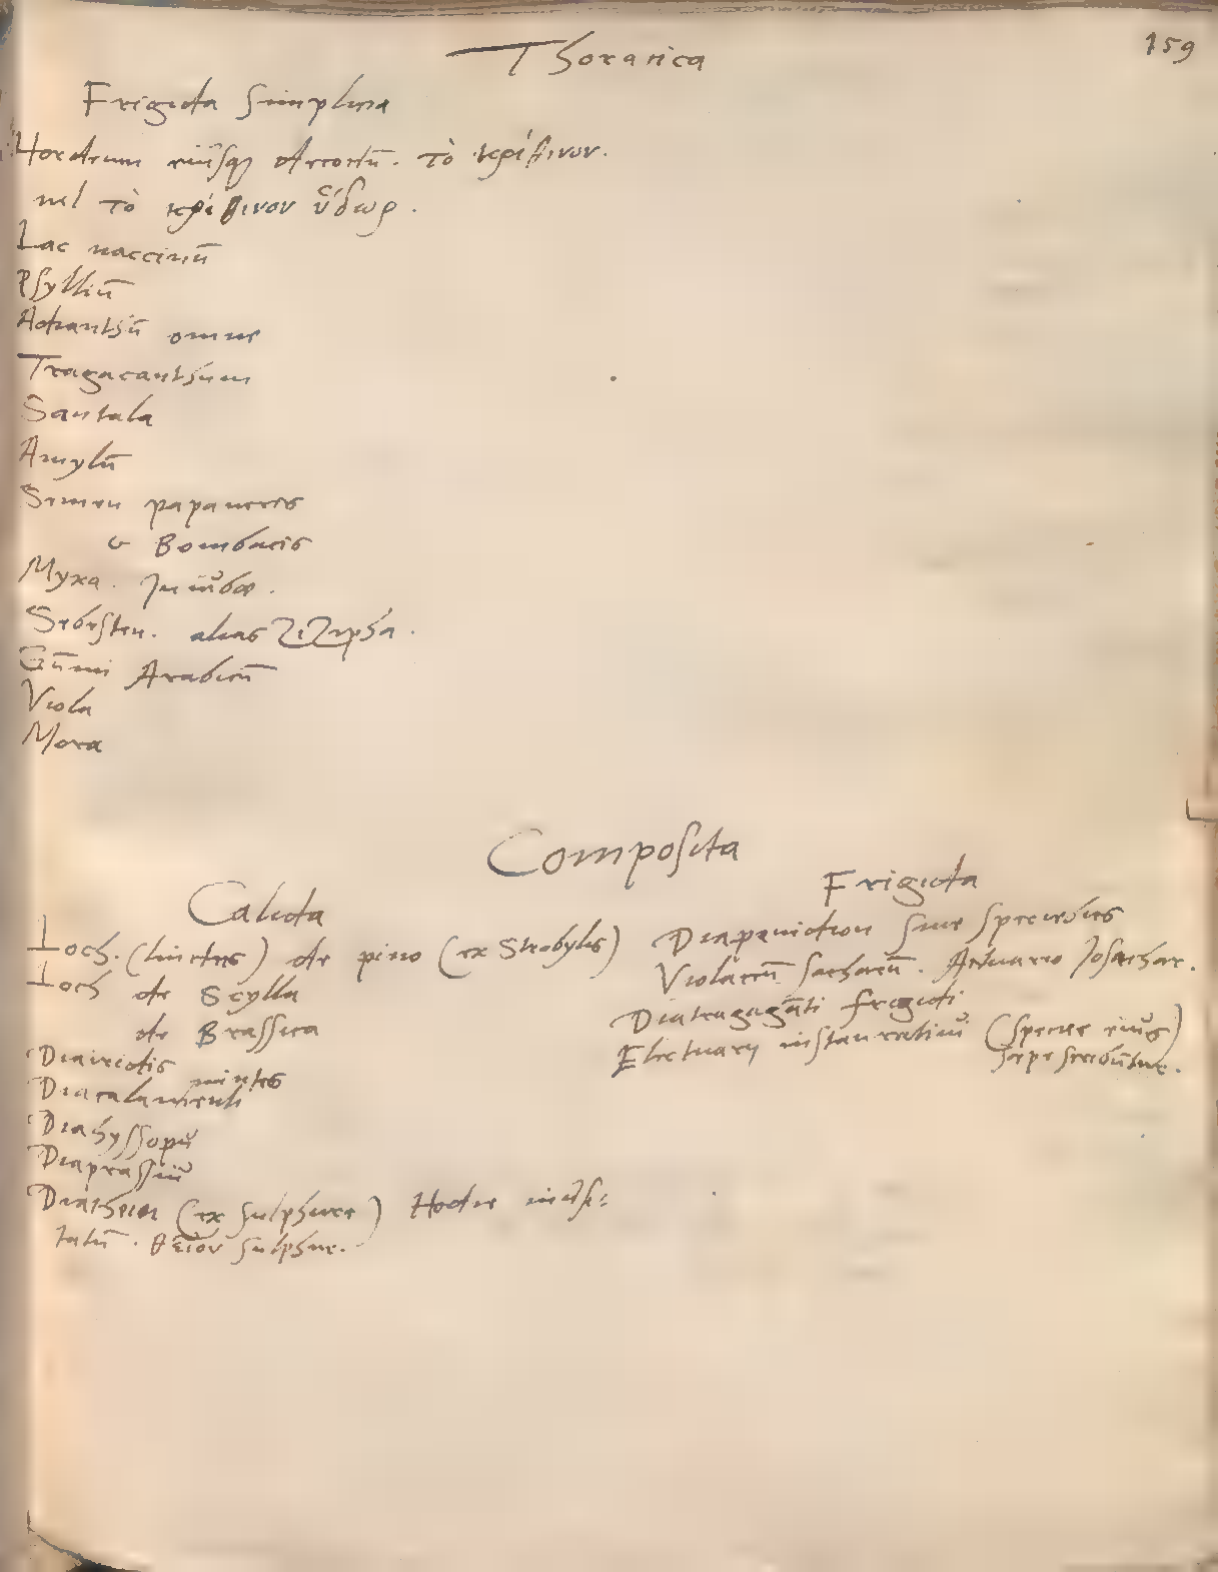 159
Thoracica
Frigida Simplicia
Hordeum eiusq decoctū. τὸ κρίθινον.
uel τὸ κρίθινον ὕδωρ.
Lac uaccinū
Psylliū
Adianthū omne
Tragacanthum
Santala
Amylū
Semen papaueris
& Bombacis
Myxa. Iuiubæ.
Sebesten. alias Zizypha.
Gūmi Arabicū
Viola
Mora
Composita
Calida
Loch. (linctus) de pino (ex Strobylis)
Loch de Scylla
de Brassica
Diaireotis
Diacalamenti mintes
Diahyssopu
Diaprassiu
Diatheion (ex sulphure) Hodie inusi=
tatū. θεῖον sulphur.
Frigida
Diapenidion sine speciebus
Violaceū sacharū. Actuario Iosachar.
Diatragagāti frigidi
Electuarij instauratiui (species eius)
sæpe scribūtur.